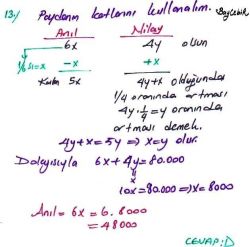 13,) Paydanın katlarını kullanalım. Böylelikle
Anıl Nilay
6x 4y olsun
1/6 sı=x -x +x
Kalan 5x 4y+x olduğundan
1/4 oranında artması
4y.1/4=y oranında
artması demek.
4y+x=5y ⇒ x=y olur.
Dolayısıyla 6x+4y=80.000
x
10x=80.000 ⇒ x=8000
Anıl=6x=6.8000
=48000
CEVAP:D